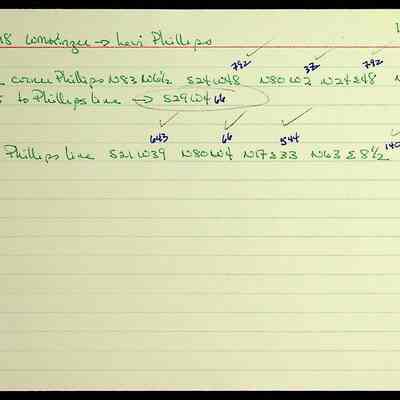 → Levi Phillips
792 33 792
corner Phillips N83 W6½ S24W48 N80W2 N24E48 N
to Phillips line → S29W4 66
643 66 544 140
Phillips line S21W39 N80W4 N17E33 N63E8½